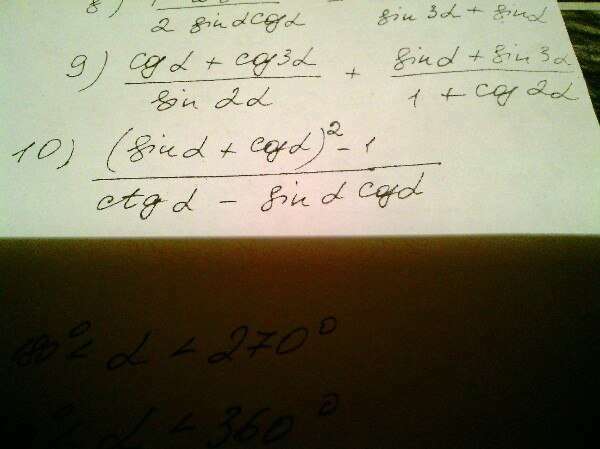 8)
2 sin α cos α    sin 3α + sin α
9) (cos α + cos 3α) / (sin 2α) + (sin α + sin 3α) / (1 + cos 2α)
10) ((sin α + cos α)² - 1) / (ctg α - sin α cos α)
180° < α < 270°
< α < 360°